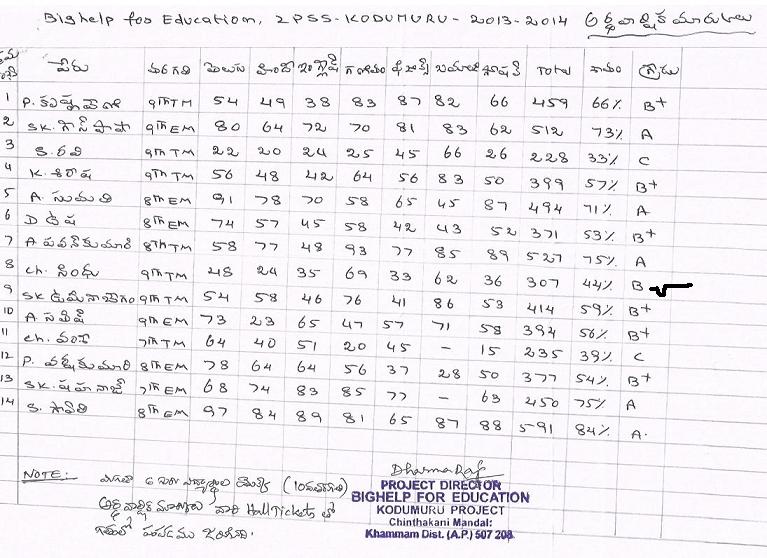 Bighelp for Education, ZPSS-KODUMURU - 2013-2014 అర్ధవార్షిక మార్కులు
పేరు తరగతి తెలుగు హిందీ ఇంగ్లీష్ గణితం ఫిజిక్స్ బయాలజీ సోషల్ Total శాతం గ్రేడు
1 P. 9th TM 54 49 38 83 87 82 66 459 66% B+
2 SK. 9th EM 80 64 72 70 81 83 62 512 73% A
3 S. రవి 9th TM 22 20 24 25 45 66 26 228 33% C
4 K. శిరీష 9th TM 56 48 42 64 56 83 50 399 57% B+
5 A. సుమతి 8th EM 91 78 70 58 65 45 87 494 71% A
6 D 8th EM 74 57 45 58 42 43 52 371 53% B+
7 A పవన్ కుమారి 8th TM 58 77 48 93 77 85 89 527 75% A
8 Ch. సింధు 9th TM 48 24 35 69 33 62 36 307 44% B
9 SK 9th TM 54 58 46 76 41 86 53 414 59% B+
10 A. 9th EM 73 23 65 47 57 71 58 394 56% B+
11 Ch. 7th TM 64 40 51 20 45 - 15 235 39% C
12 P. 8th EM 78 64 64 56 37 28 50 377 54% B+
13 SK. షహనాజ్ 7th EM 68 74 83 85 77 - 63 450 75% A
14 S. 8th EM 97 84 89 81 65 87 88 591 84% A.
NOTE:- మిగతా 6 (10వతరగతి)
అర్ధవార్షిక మార్కులు వారి Hall Tickets తో
DharmaRao
PROJECT DIRECTOR
BIGHELP FOR EDUCATION
KODUMURU PROJECT
Chinthakani Mandal:
Khammam Dist. (A.P.) 507 208.